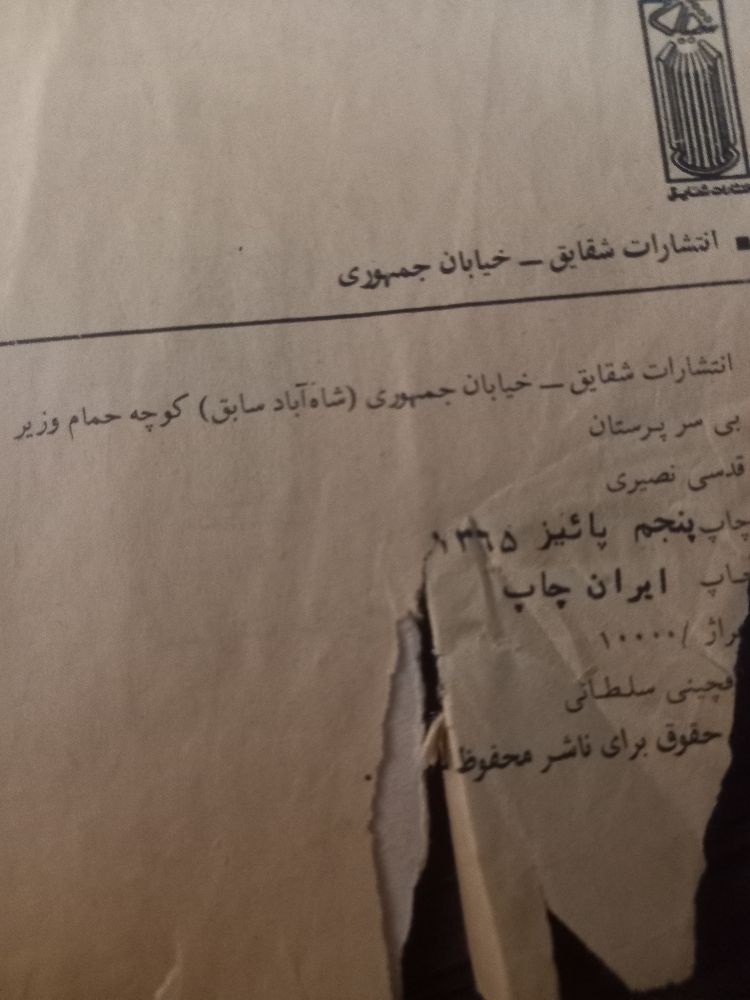 انتشارات شقایق
■ انتشارات شقایق ــ خیابان جمهوری
انتشارات شقایق ــ خیابان جمهوری (شاه‌آباد سابق) کوچه حمام وزیر
بی سر پرستان
قدسی نصیری
چاپ پنجم پائیز ۱۳٦۵
چاپ ایران چاپ
۱۰۰۰۰/
سلطانی
حقوق برای ناشر محفوظ